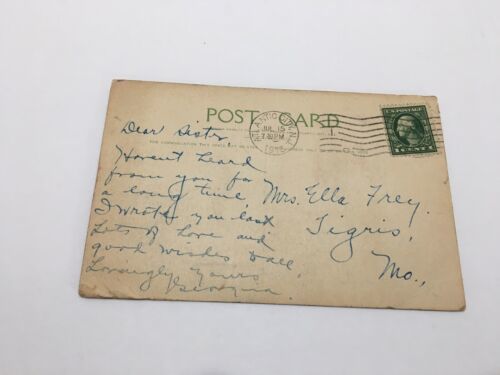 POST CARD
U.S. POSTAGE
ATLANTIC CITY, N.J.
JUL 15
7 30 PM
Dear Sister
Havent heard
from you for
a long time,
I wrote you last
Lots of love and
good wishes to all,
Lovingly Yours
Georgina.
Mrs. Ella Frey.
Tigris,
Mo.,